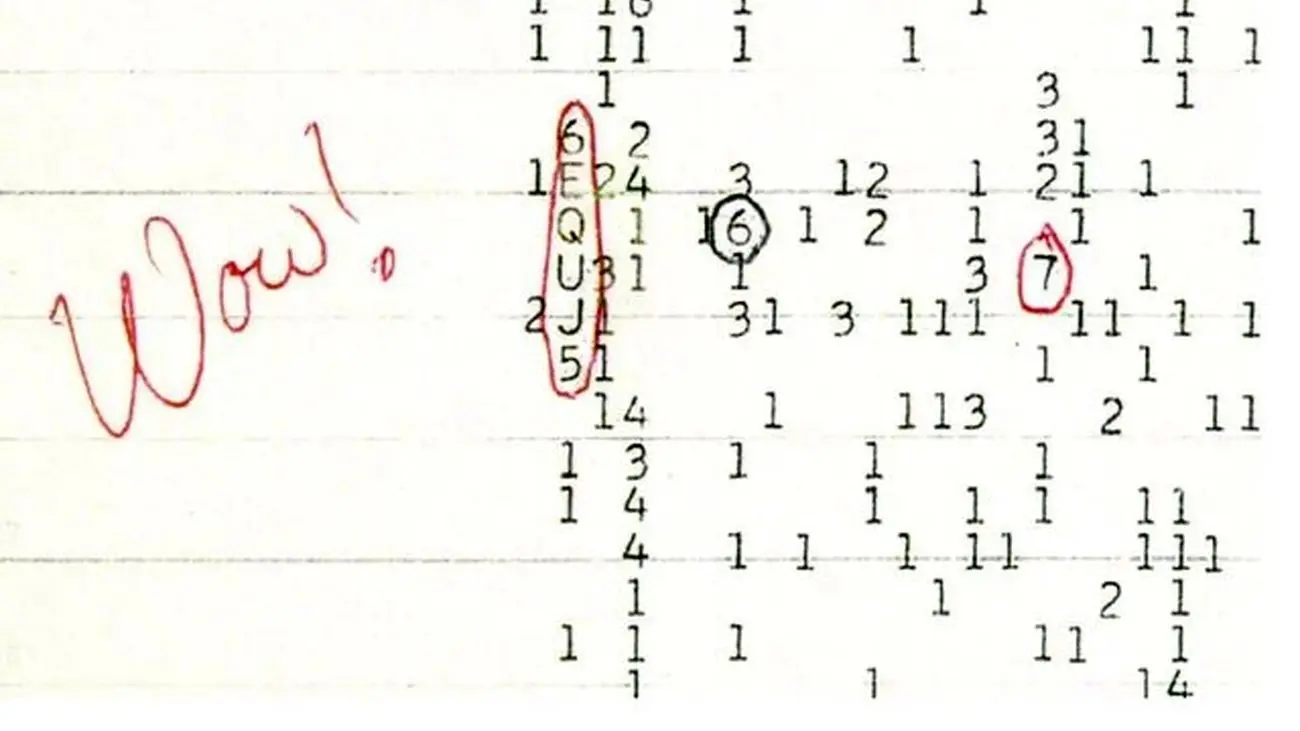 1 11 1 1 11 1
1 3 1
6 2 31
1E24 3 12 1 21 1
Q 1 16 1 2 1 1 1
U31 1 3 7 1
2J1 31 3 111 11 1 1
51 1 1
14 1 113 2 11
1 3 1 1 1
1 4 1 1 1 11
4 1 1 1 11 111
1 1 2 1
1 1 1 11 1
1 1 14
Wow!